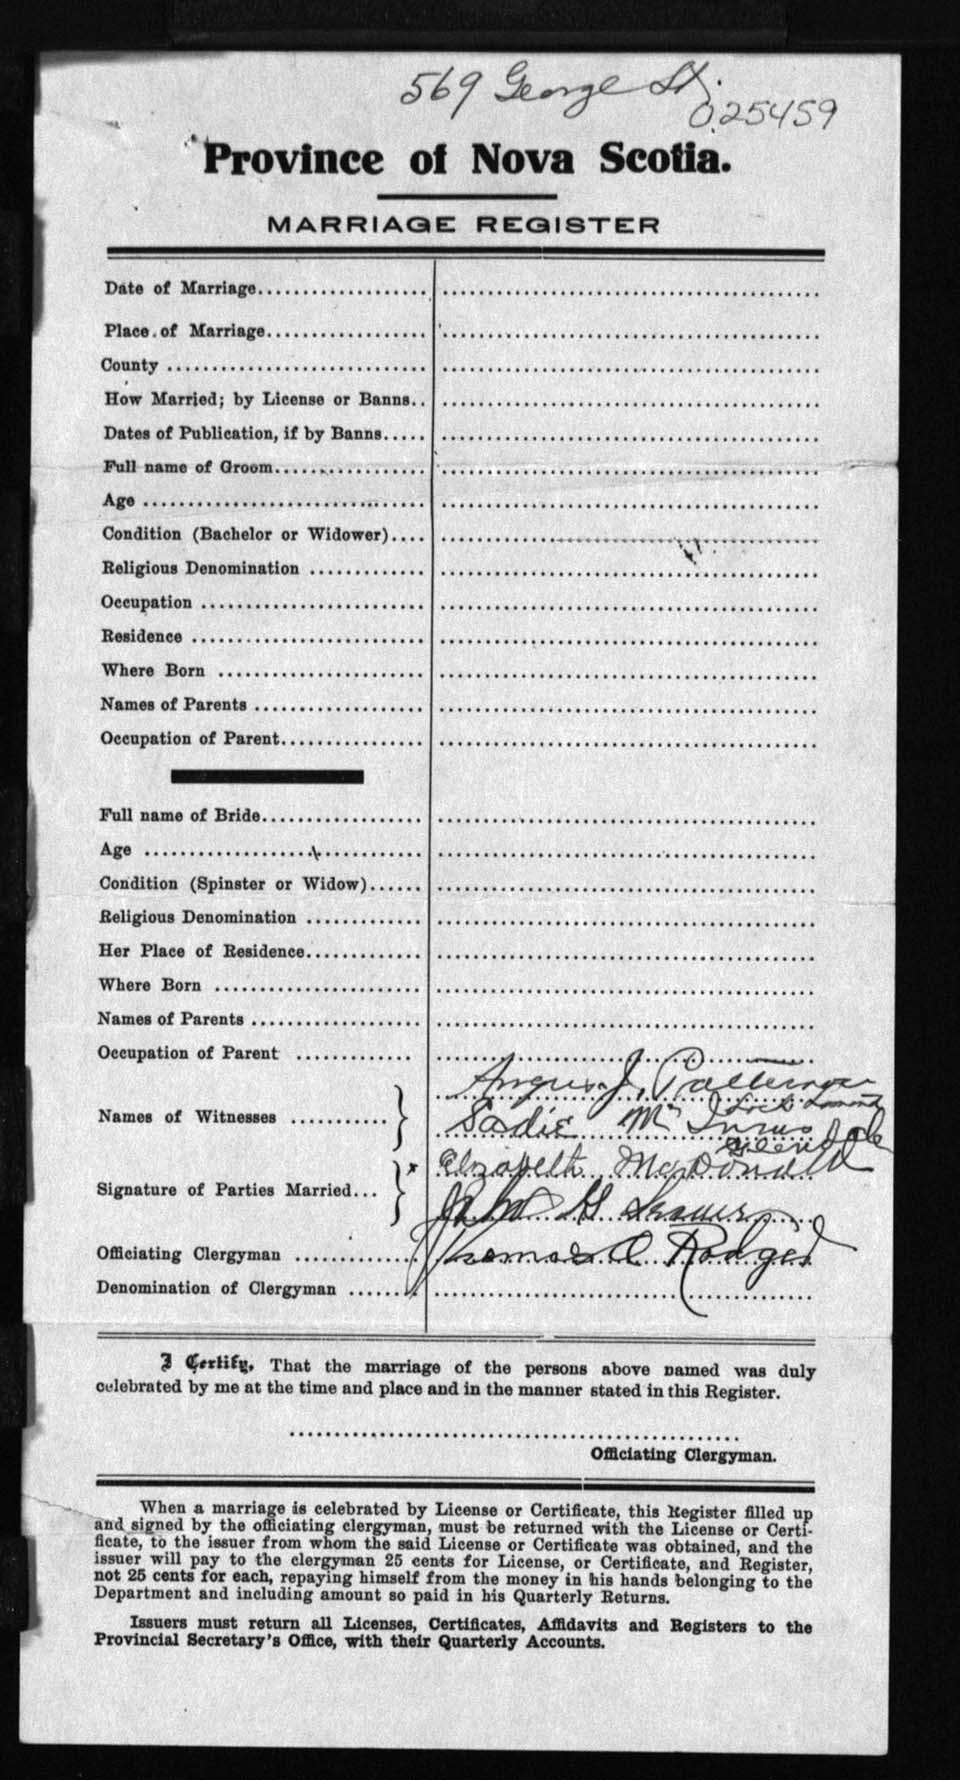 569 George St.
025459
Province of Nova Scotia.
MARRIAGE REGISTER
Date of Marriage
Place of Marriage
County
How Married; by License or Banns
Dates of Publication, if by Banns
Full name of Groom
Age
Condition (Bachelor or Widower)
Religious Denomination
Occupation
Residence
Where Born
Names of Parents
Occupation of Parent
Full name of Bride
Age
Condition (Spinster or Widow)
Religious Denomination
Her Place of Residence
Where Born
Names of Parents
Occupation of Parent
Angus J. Patterson
Loch Lomond
Names of Witnesses
Sadie Mc Innis
Glendale
Elizabeth MacDonald
Signature of Parties Married
John
Officiating Clergyman Thomas O Rodged
Denomination of Clergyman
I Certify, That the marriage of the persons above named was duly
celebrated by me at the time and place and in the manner stated in this Register.
Officiating Clergyman.
When a marriage is celebrated by License or Certificate, this Register filled up
and signed by the officiating clergyman, must be returned with the License or Certi-
ficate, to the issuer from whom the said License or Certificate was obtained, and the
issuer will pay to the clergyman 25 cents for License, or Certificate, and Register,
not 25 cents for each, repaying himself from the money in his hands belonging to the
Department and including amount so paid in his Quarterly Returns.
Issuers must return all Licenses, Certificates, Affidavits and Registers to the
Provincial Secretary's Office, with their Quarterly Accounts.